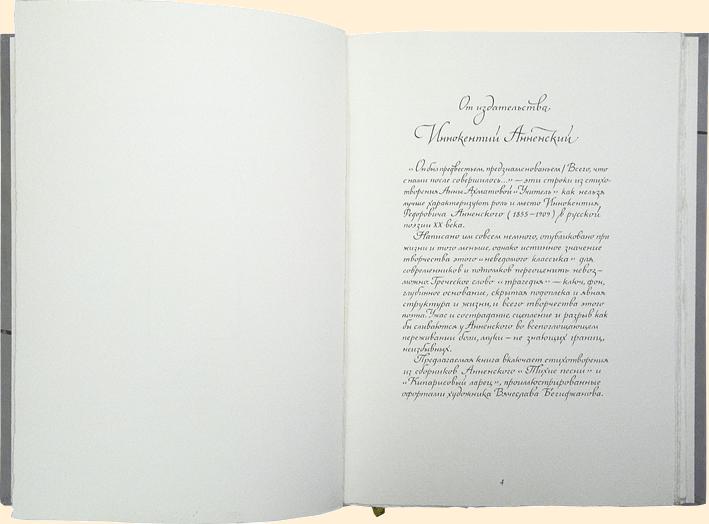 От издательства
Иннокентий Анненский
«Он был предвестьем, предзнаменованьем / Всего, что
с нами после совершилось...» – эти строки из стихо-
творения Анны Ахматовой «Учитель» как нельзя
лучше характеризуют роль и место Иннокентия
Федоровича Анненского (1855–1909) в русской
поэзии XX века.
Написано им совсем немного, опубликовано при
жизни и того меньше, однако истинное значение
творчества этого «неведомого классика» для
современников и потомков переоценить невоз-
можно. Греческое слово «трагедия» – ключ, фон,
глубинное основание, скрытая подоплека и явная
структура и жизни, и всего творчества этого
поэта. Ужас и сострадание, сцепление и разрыв как
бы сливаются у Анненского во всепоглощающем
переживании боли, муки – не знающих границ,
неизбывных.
Предлагаемая книга включает стихотворения
из сборников Анненского «Тихие песни» и
«Кипарисовый ларец», проиллюстрированные
офортами художника Вячеслава Бегиджанова.
4